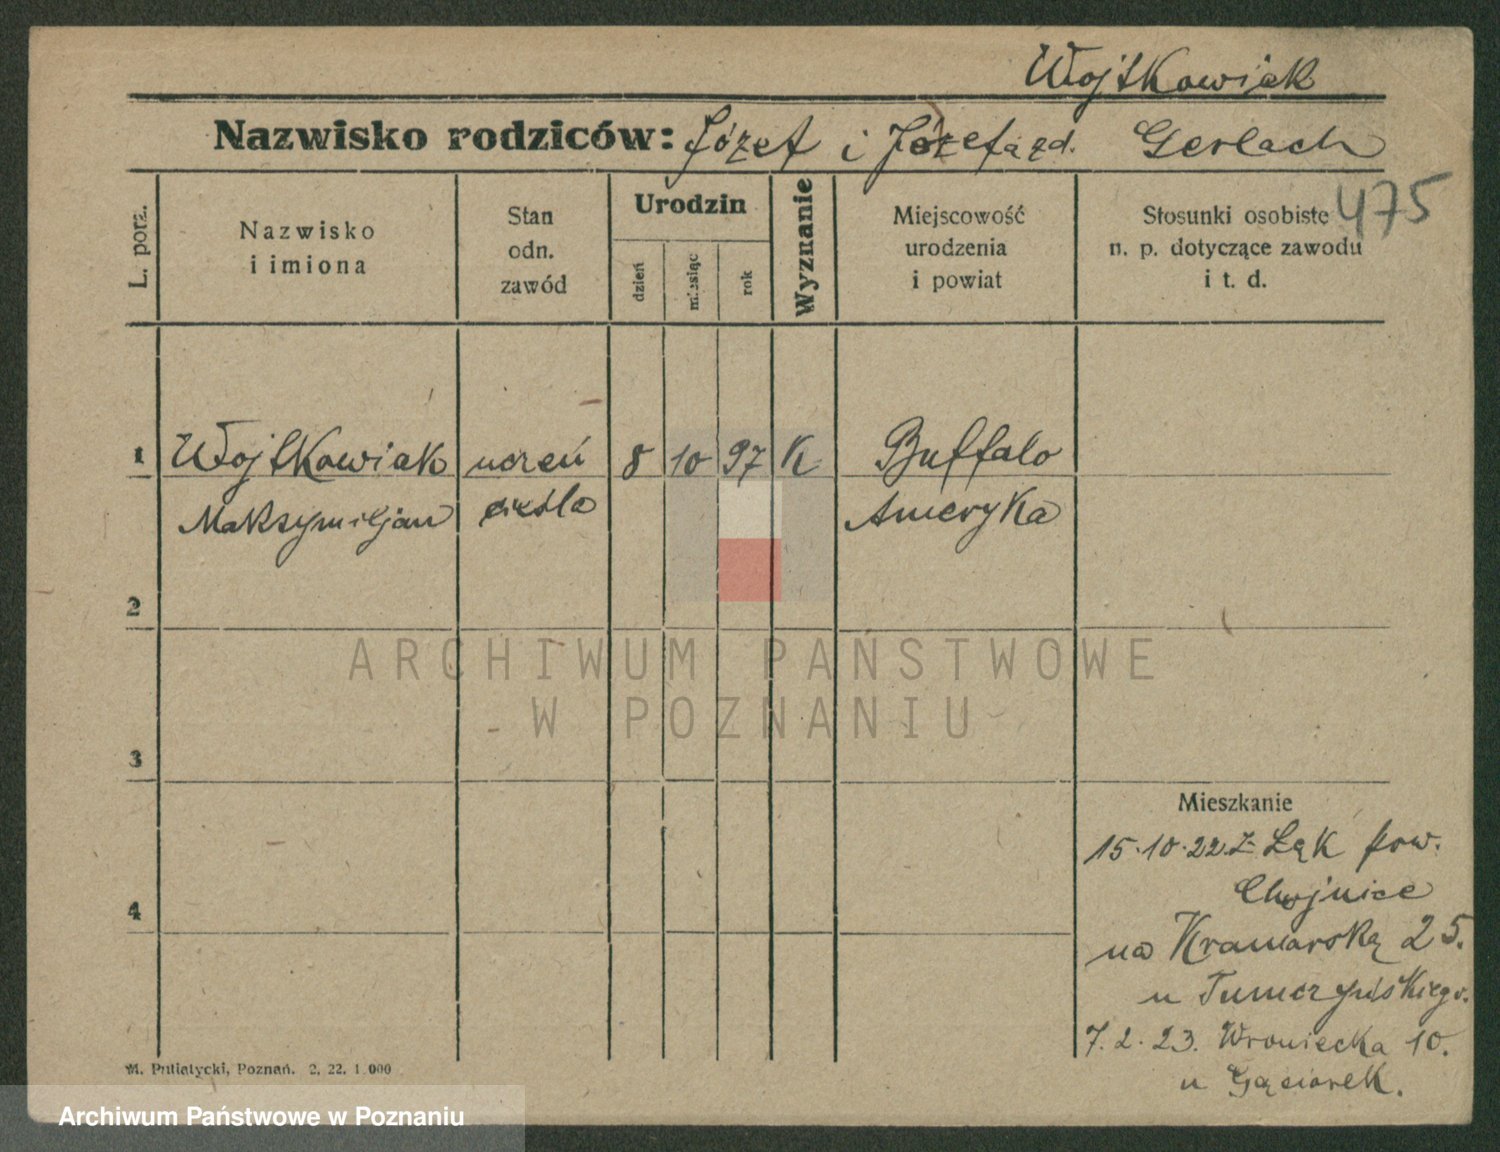 Wojtkowiak
Nazwisko rodziców: Józef i Józefa zd. Gerlach
475
L. porz.
Nazwisko
i imiona
Stan
odn.
zawód
Urodzin
dzień
miesiąc
rok
Wyznanie
Miejscowość
urodzenia
i powiat
Stosunki osobiste
n. p. dotyczące zawodu
i t. d.
1 Wojtkowiak uczeń 8 10 97 K Buffalo
Maksymiljan cieśla Ameryka
2
3
4
Mieszkanie
15.10.22 z Łąk pow.
Chojnice
na Kramarską 25.
u Tumczyńskiego.
7.2.23. Wroniecka 10.
u Gąsiorek.
M. Putiatycki, Poznań. 2, 22. 1.000
ARCHIWUM PAŃSTWOWE
W POZNANIU
Archiwum Państwowe w Poznaniu